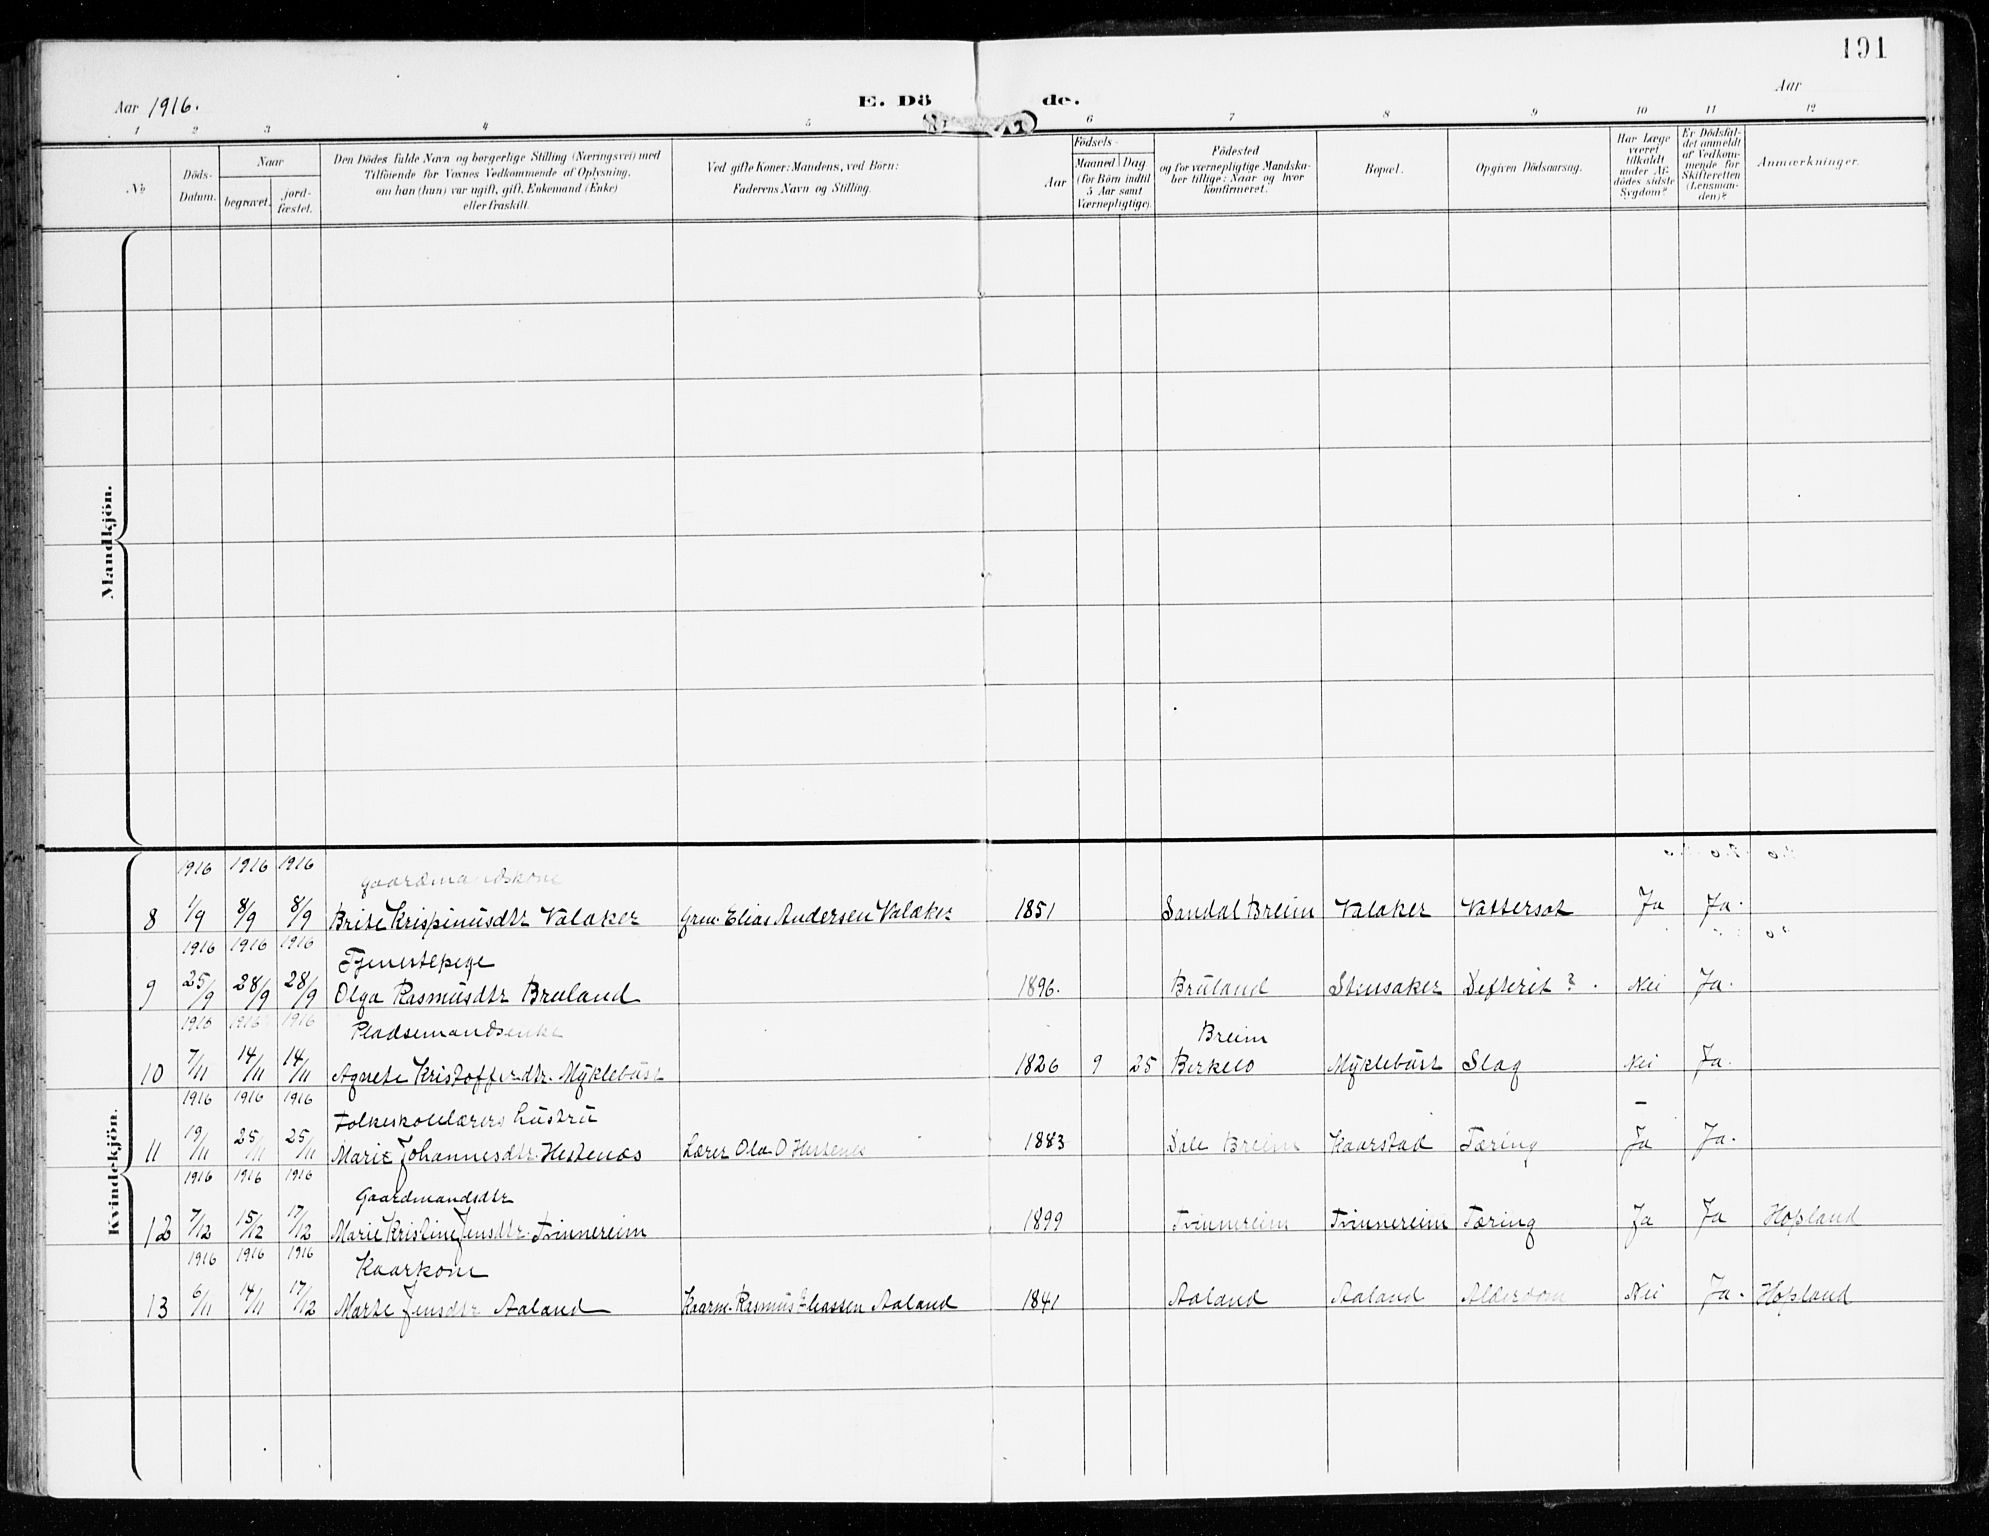 191
Aar 1916.
E. Dö
de.
Aar
1 2 3 4 5 6 7 8 9 10 11 12
No
Döds-Datum.
Naar
begravet.
jord-fæstet.
Den Dödes fulde Navn og borgerlige Stilling (Næringsvei) med
Tilföiende for Voxnes Vedkommende af Oplysning,
om han (hun) var ugift, gift, Enkemand (Enke)
eller fraskilt.
Ved gifte Koner: Mandens, ved Börn:
Faderens Navn og Stilling.
Födsels-
Aar
Maaned Dag
(for Börn indtil
5 Aar samt
Værnepligtige).
Födested
og for værnepligtige Mandska-
ber tillige: Naar og hvor
konfirmeret.
Bopæl.
Opgiven Dödsaarsag.
Har Læge
været
tilkaldt
under Af-
dödes sidste
Sygdom?
Er Dödsfal-
det anmeldt
af Vedkom-
mende for
Skifteretten
(Lensman-
den)?
Anmærkninger.
Mandkjön.
Kvindekjön.
1916 1916 1916
Gaardmandskone
8 1/9 8/9 8/9 Brite Krispinusdtr Valaker Grm. Elias Andersen Valaker 1851 Sandal Breim Valaker Vattersot Ja Ja.
1916 1916 1916
Tjenestepige
9 25/9 28/9 28/9 Olga Rasmusdtr Bruland 1896. Bruland Stensaker Difterit ? . Nei Ja.
1916 1916 1916
Pladsemandsenke Breim
10 7/11 14/11 14/11 Agnete Kristofferdtr. Myklebust 1826 9 25 Berkelo Myklebust Slag Nei Ja.
1916 1916 1916
Folkeskolelærers hustru
11 19/11 25/11 25/11 Marie Johannesdtr. Hestenes Lærer Ola O Hestenes 1883 Dale Breim Kaarstad Tæring Ja Ja.
1916 1916 1916
Gaardmandsdtr
12 7/12 15/12 17/12 Marie Kristine Jensdtr. Tvinnereim 1899 Tvinnereim Tvinnereim Tæring Ja Ja Hopland
1916 1916 1916
Kaarkone
13 6/11 14/11 17/12 Marte Jensdtr Aaland Kaarm. Rasmus Eliassen Aaland 1841 Aaland Aaland Alderdom Nei Ja. Hopland